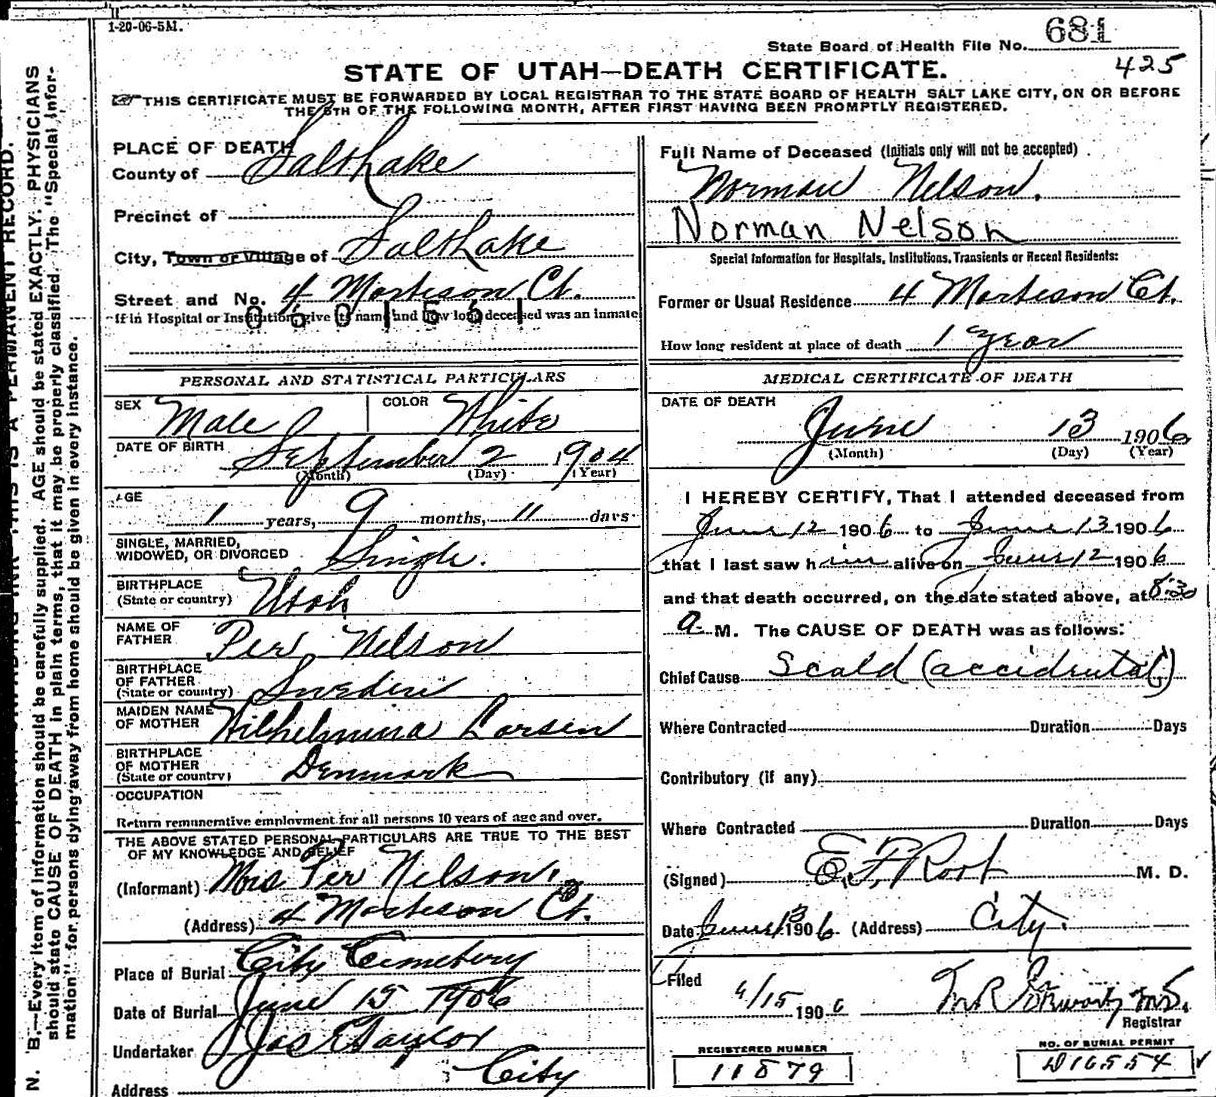 1-20-06-5M.
State Board of Health File No. 681
425
STATE OF UTAH—DEATH CERTIFICATE.
THIS CERTIFICATE MUST BE FORWARDED BY LOCAL REGISTRAR TO THE STATE BOARD OF HEALTH SALT LAKE CITY, ON OR BEFORE
THE 5TH OF THE FOLLOWING MONTH, AFTER FIRST HAVING BEEN PROMPTLY REGISTERED.
PLACE OF DEATH
County of Salt Lake
Precinct of
City, Town or Village of Salt Lake
Street and No. 4 Morteson Ct.
If in Hospital or Institution, give its name and how long deceased was an inmate
PERSONAL AND STATISTICAL PARTICULARS
SEX Male COLOR White
DATE OF BIRTH September 2 1904
(Month) (Day) (Year)
AGE
1 years, 9 months, 11 days
SINGLE, MARRIED,
WIDOWED, OR DIVORCED Single.
BIRTHPLACE
(State or country) Utah
NAME OF
FATHER Per Nelson
BIRTHPLACE
OF FATHER
(State or country) Sweden
MAIDEN NAME
OF MOTHER Wilhelmina Larsen
BIRTHPLACE
OF MOTHER
(State or country) Denmark
OCCUPATION
Return remunerative employment for all persons 10 years of age and over.
THE ABOVE STATED PERSONAL PARTICULARS ARE TRUE TO THE BEST
OF MY KNOWLEDGE AND BELIEF
(Informant) Mrs Per Nelson.
(Address) 4 Morteson Ct.
Place of Burial City Cemetery
Date of Burial June 15 1906
Undertaker Jas E Taylor
Address City
Full Name of Deceased (Initials only will not be accepted)
Norman Nelson.
Norman Nelson
Special Information for Hospitals, Institutions, Transients or Recent Residents:
Former or Usual Residence 4 Morteson Ct.
How long resident at place of death 1 year
MEDICAL CERTIFICATE OF DEATH
DATE OF DEATH
June 13 1906
(Month) (Day) (Year)
I HEREBY CERTIFY, That I attended deceased from
June 12 1906 to June 13 1906
that I last saw him alive on June 12 1906
and that death occurred, on the date stated above, at 8:30
a M. The CAUSE OF DEATH was as follows:
Chief Cause Scald (accidental)
Where Contracted Duration Days
Contributory (if any)
Where Contracted Duration Days
(Signed) E. F. Root M. D.
Date June 13 1906 (Address) City.
Filed 6/15 1906
Registrar
REGISTERED NUMBER
11879
NO. OF BURIAL PERMIT
D16554
N. B.—Every item of information should be carefully supplied. AGE should be stated EXACTLY. PHYSICIANS
should state CAUSE OF DEATH in plain terms, that it may be properly classified. The "Special Infor-
mation" for persons dying away from home should be given in every instance.
THIS IS A PERMANENT RECORD.